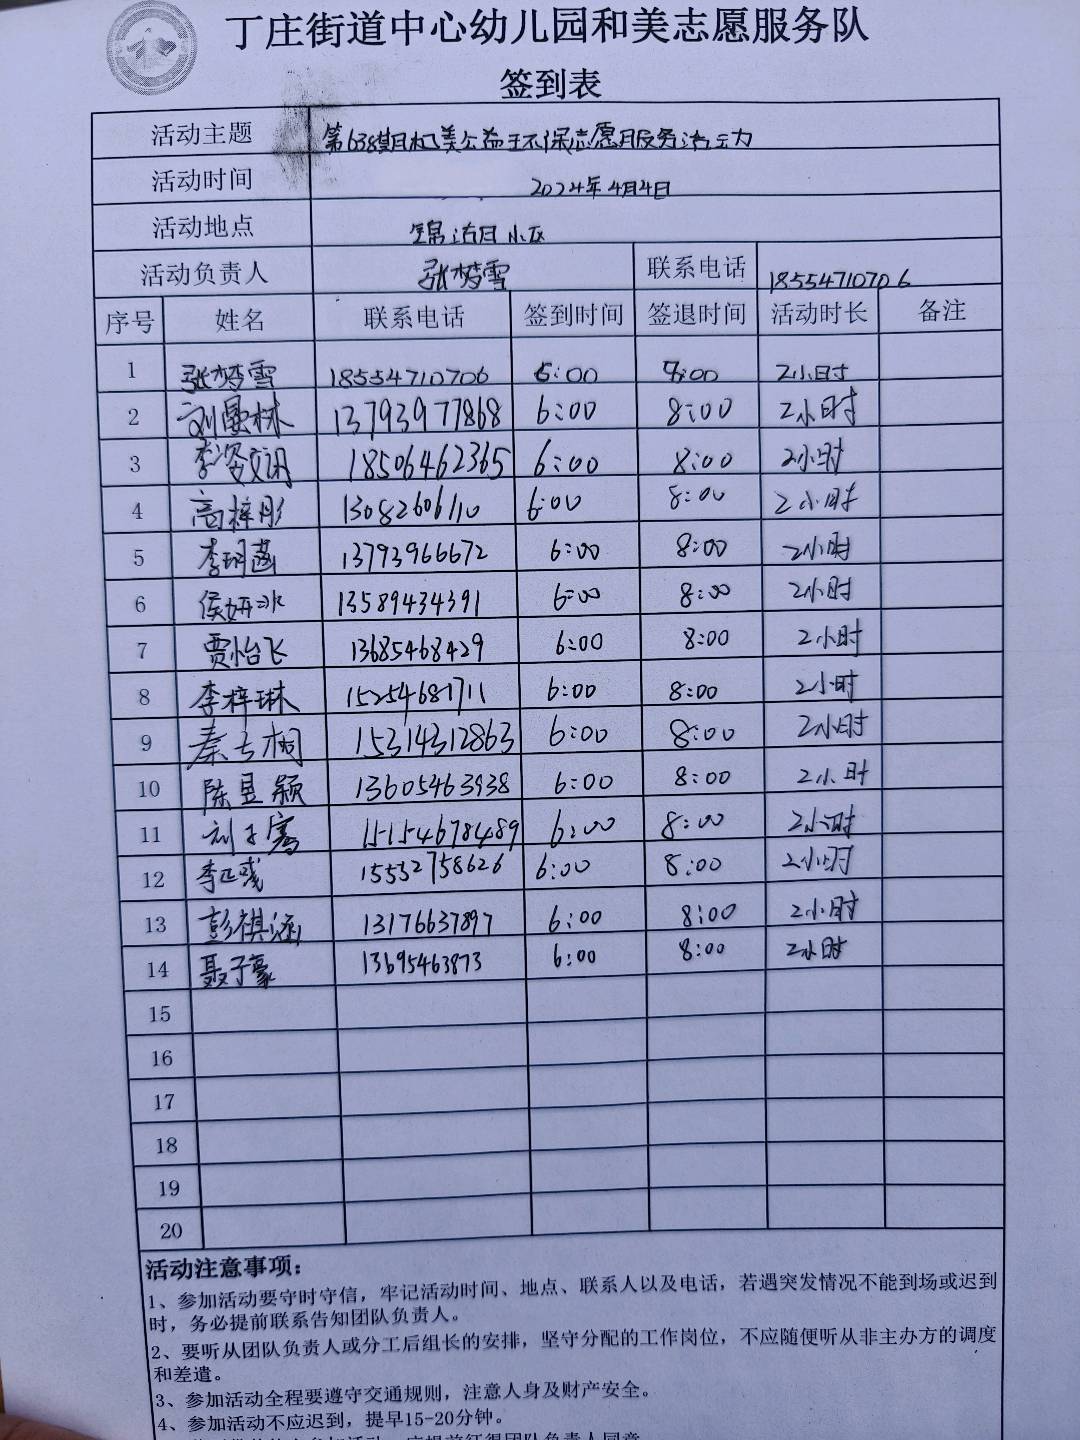 丁庄街道中心幼儿园和美志愿服务队
签到表
活动主题 第638期和美公益环保志愿服务活动
活动时间 2024年4月4日
活动地点 锦湖月小区
活动负责人 张梦雪 联系电话 18554710706
序号 姓名 联系电话 签到时间 签退时间 活动时长 备注
1 张梦雪 18554710706 6:00 8:00 2小时
2 刘 林 13793977868 6:00 8:00 2小时
3 李姿 18506462365 6:00 8:00 2小时
4 高梓彤 13082606110 6:00 8:00 2小时
5 李玥菡 13793966672 6:00 8:00 2小时
6 侯妍冰 13589434391 6:00 8:00 2小时
7 贾怡飞 13685468429 6:00 8:00 2小时
8 李梓琳 15254681711 6:00 8:00 2小时
9 秦 桐 15314312863 6:00 8:00 2小时
10 陈昱颖 13605463938 6:00 8:00 2小时
11 刘子骞 15154678489 6:00 8:00 2小时
12 李 彧 15532758626 6:00 8:00 2小时
13 彭祺涵 13176637897 6:00 8:00 2小时
14 聂子豪 13695463873 6:00 8:00 2小时
15
16
17
18
19
20
活动注意事项：
1、参加活动要守时守信，牢记活动时间、地点、联系人以及电话，若遇突发情况不能到场或迟到
时，务必提前联系告知团队负责人。
2、要听从团队负责人或分工后组长的安排，坚守分配的工作岗位，不应随便听从非主办方的调度
和差遣。
3、参加活动全程要遵守交通规则，注意人身及财产安全。
4、参加活动不应迟到，提早15-20分钟。